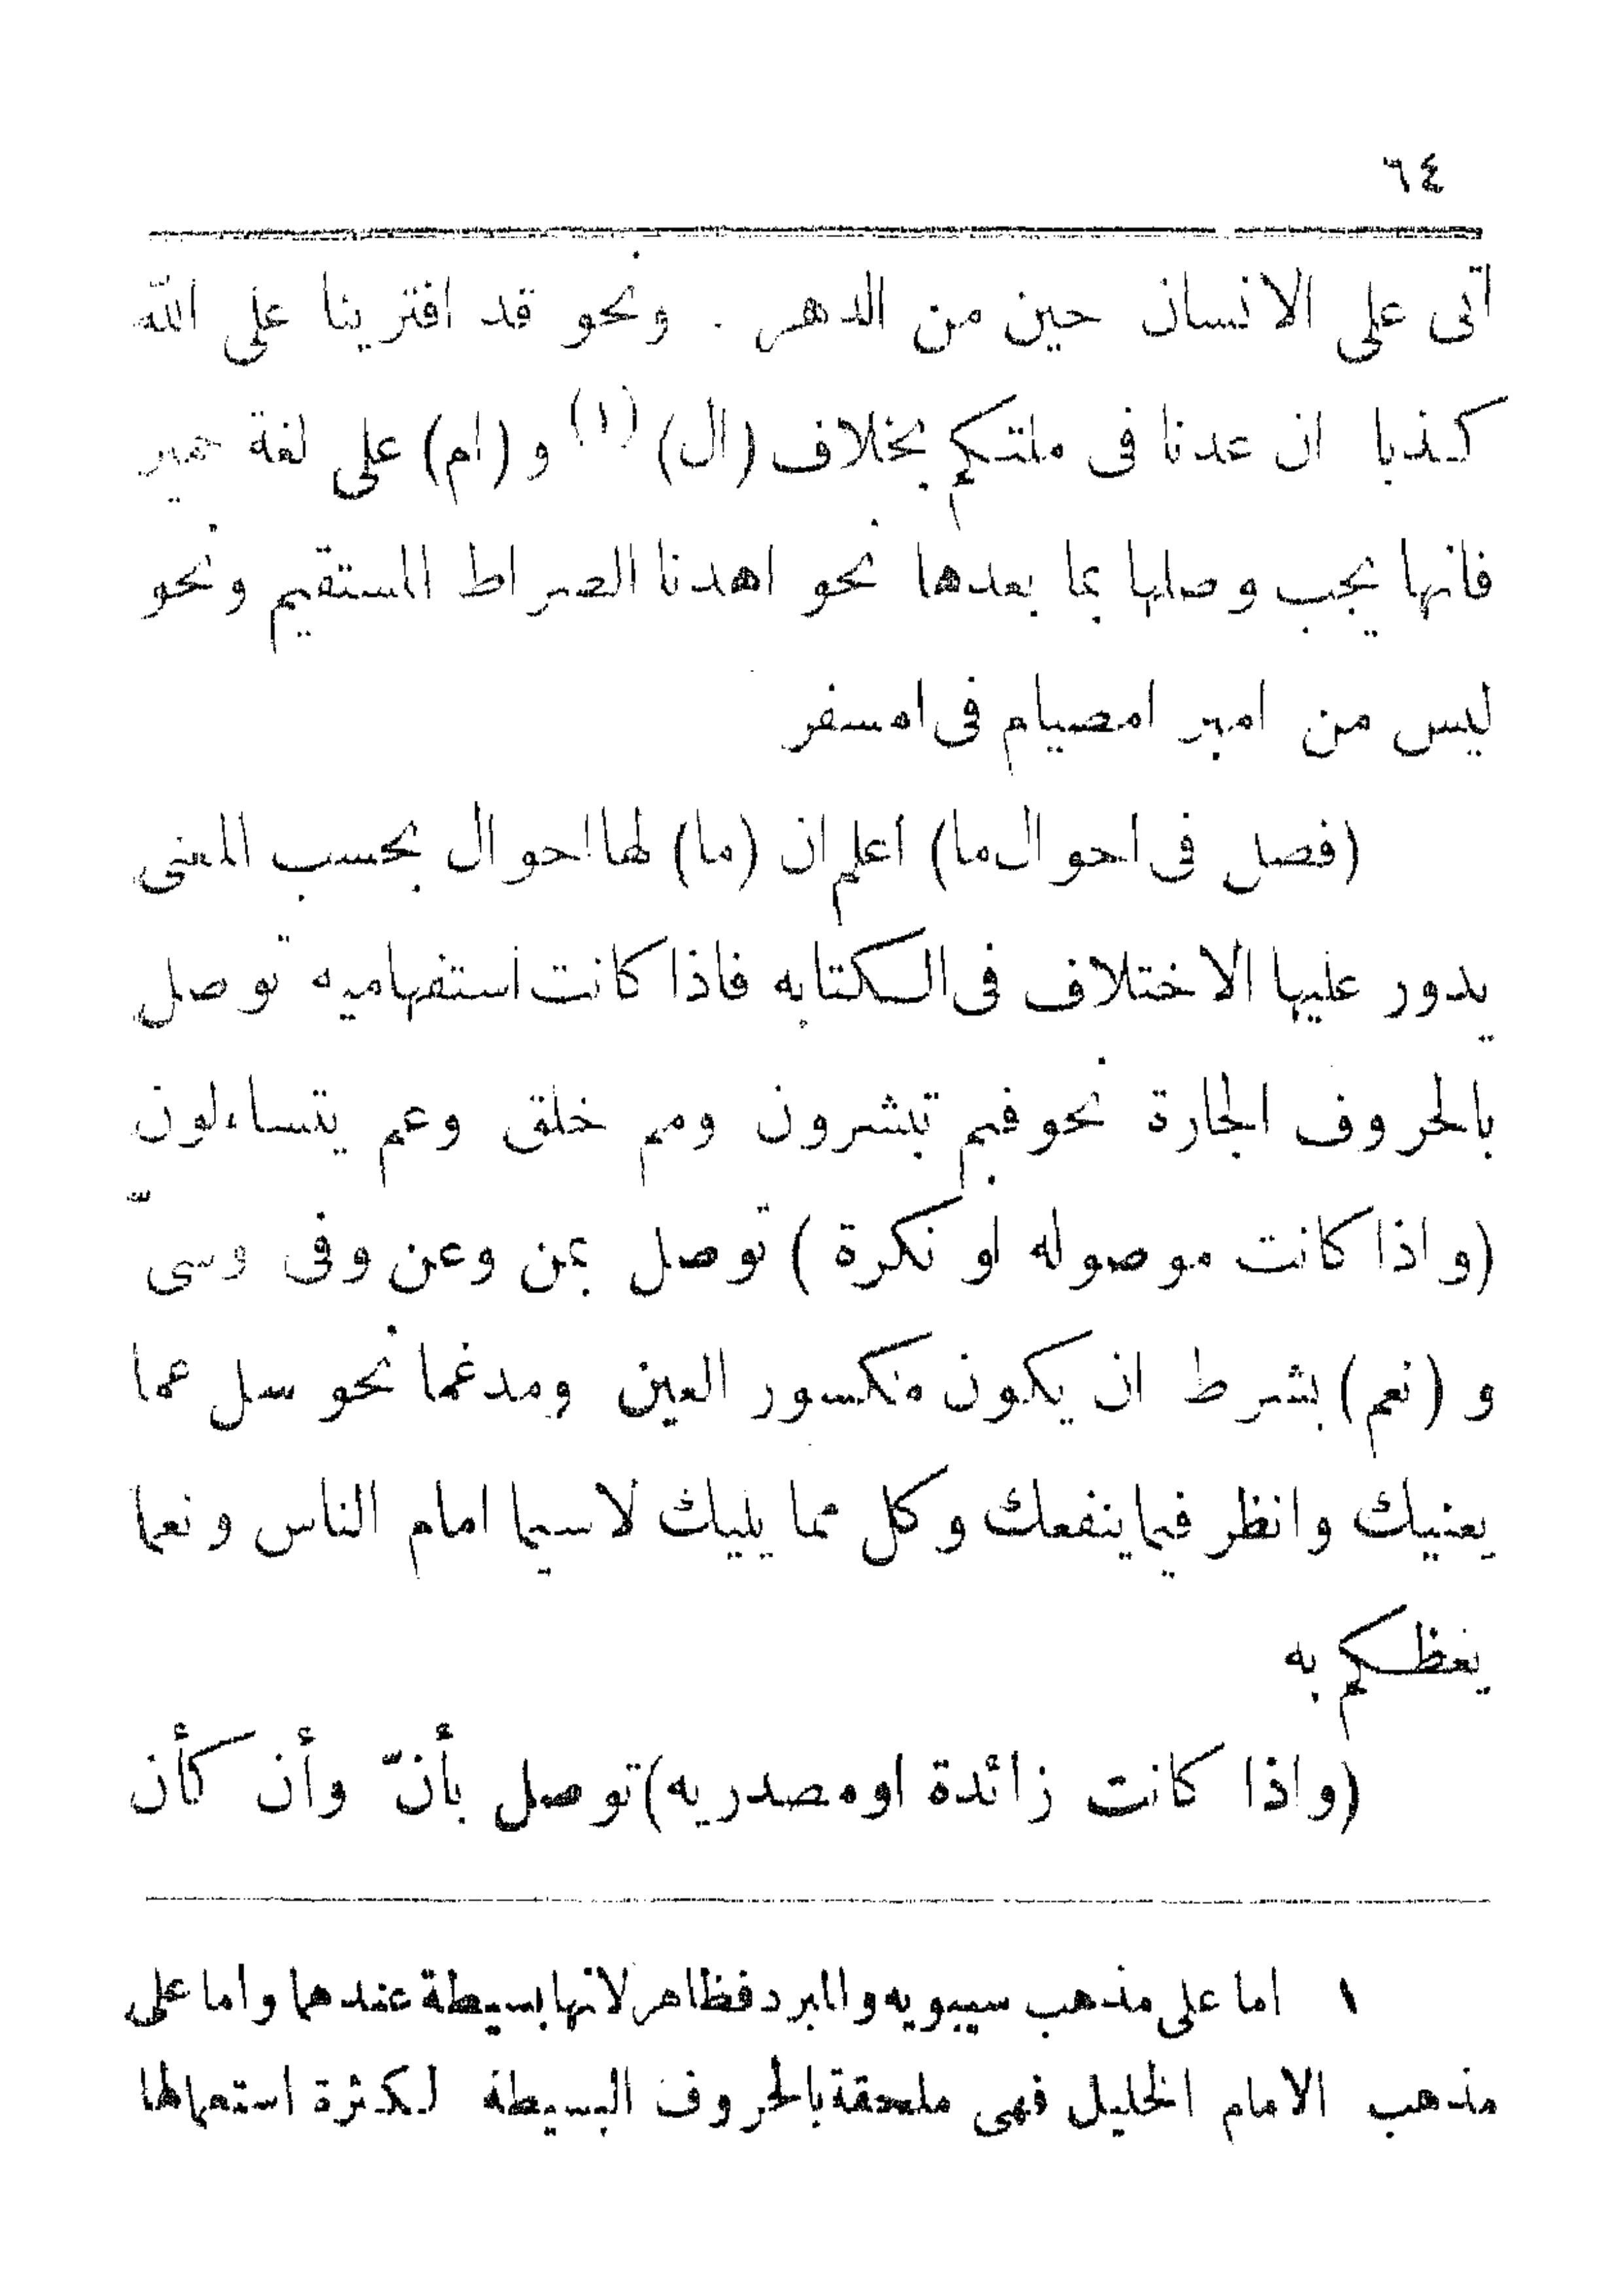 ٦٤
أتى على الانسان حين من الدهر . ونحو قد افترينا على الله
كذبا ان عدنا فى ملتكم بخلاف (ال) (١) و (ام) على لغة حمير
فانها يجب وصلها بما بعدها نحو اهدنا الصراط المستقيم ونحو
ليس من امبر امصيام فى امسفر
(فصل فى احوال ما) اعلم ان (ما) لها احوال بحسب المعنى
يدور عليها الاختلاف فى الكتابه فاذا كانت استفهاميه توصل
بالحروف الجارة نحو فبم تبشرون ومم خلق وعم يتساءلون
(واذا كانت موصوله او نكرة ) توصل بمن وعن وفى وسىّ
و (نعم) بشرط ان يكون مكسور العين ومدغما نحو سل عما
يعنيك وانظر فيما ينفعك وكل مما يليك لاسيما امام الناس ونعما
يعظكم به
(واذا كانت زائدة او مصدريه) توصل بأنّ وأن كأن
١ اما على مذهب سيبويه والمبرد فظاهر لانها بسيطة عندهما واما على
مذهب الامام الخليل فهى ملحقة بالحروف البسيطة لكثرة استعمالها